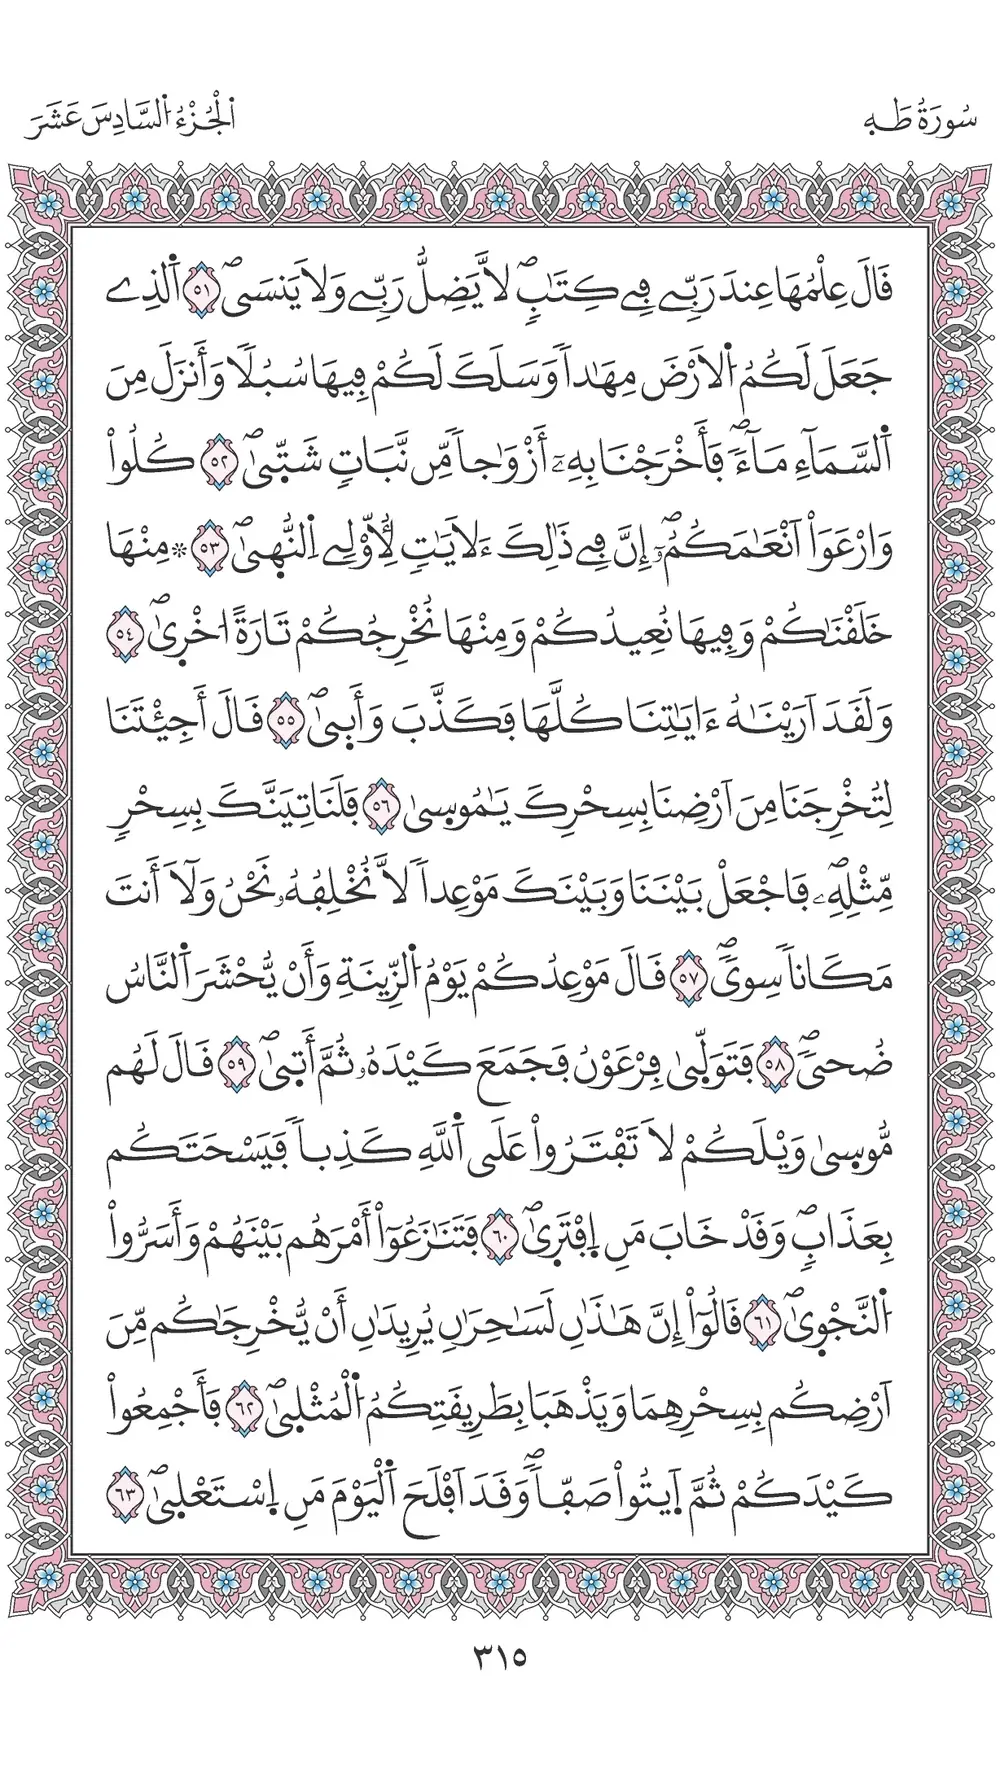 سُورَةُ طَهِ
اَ۬لْجُزْءُ اُ۬لسَّادِسَ عَشَرَ
قَالَ عِلْمُهَا عِندَ رَبِّے فِے كِتَٰبٖۖ لَّا يَضِلُّ رَبِّے وَلَا يَنسَىۖ ٥١ اَ۬لذِے
جَعَلَ لَكُمُ اُ۬لَارْضَ مِهَٰداٗ وَسَلَكَ لَكُمْ فِيهَا سُبُلاٗ وَأَنزَلَ مِنَ
اَ۬لسَّمَآءِ مَآءٗۖ فَأَخْرَجْنَا بِهِۦٓ أَزْوَٰجاٗ مِّن نَّبَاتٖ شَتّ۪يٰۖ ٥٢ كُلُواْ
وَارْعَوَاْ اَنْعَٰمَكُمُۥٓۖ إِنَّ فِے ذَٰلِكَ ءَلَايَٰتٖ لِّأُوْلِے اِ۬لنُّه۪يٰۖ ٥٣ ۞مِنْهَا
خَلَقْنَٰكُمْ وَفِيهَا نُعِيدُكُمْ وَمِنْهَا نُخْرِجُكُمْ تَارَةً ا۟خْر۪يٰۖ ٥٤
وَلَقَدَ اَرَيْنَٰهُ ءَايَٰتِنَا كُلَّهَا فَكَذَّبَ وَأَب۪يٰۖ ٥٥ قَالَ أَجِئْتَنَا
لِتُخْرِجَنَا مِنَ اَرْضِنَا بِسِحْرِكَ يَٰمُوس۪يٰ ٥٦ فَلَنَاتِيَنَّكَ بِسِحْرٖ
مِّثْلِهِۦۖ فَاجْعَلْ بَيْنَنَا وَبَيْنَكَ مَوْعِداٗ لَّا نُخْلِفُهُۥ نَحْنُ وَلَآ أَنتَ
مَكَاناٗ سِويٗۖ ٥٧ قَالَ مَوْعِدُكُمْ يَوْمُ اُ۬لزِّينَةِ وَأَنْ يُّحْشَرَ اَ۬لنَّاسُ
ضُحيٗۖ ٥٨ فَتَوَلّ۪يٰ فِرْعَوْنُ فَجَمَعَ كَيْدَهُۥ ثُمَّ أَت۪يٰۖ ٥٩ قَالَ لَهُم
مُّوس۪يٰ وَيْلَكُمْ لَا تَفْتَرُواْ عَلَى اَ۬للَّهِ كَذِباٗ فَيَسْحَتَكُم
بِعَذَابٖۖ وَقَدْ خَابَ مَنِ اِ۪فْتَر۪يٰۖ ٦٠ فَتَنَٰزَعُوٓاْ أَمْرَهُم بَيْنَهُمْ وَأَسَرُّواْ
اُ۬لنَّجْو۪يٰۖ ٦١ قَالُوٓاْ إِنَّ هَٰذَٰنِ لَسَٰحِرَٰنِ يُرِيدَٰنِ أَنْ يُّخْرِجَٰكُم مِّنَ
اَرْضِكُم بِسِحْرِهِمَا وَيَذْهَبَا بِطَرِيقَتِكُمُ اُ۬لْمُثْل۪يٰۖ ٦٢ فَأَجْمِعُواْ
كَيْدَكُمْ ثُمَّ اَ۪يتُواْ صَفّاٗۖ وَقَدَ اَفْلَحَ اَ۬لْيَوْمَ مَنِ اِ۪سْتَعْل۪يٰۖ ٦٣
٣١٥